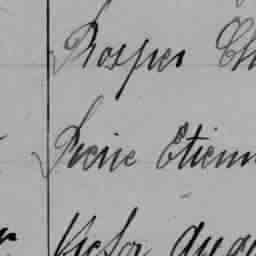 Prosper Ch
Pierre Etienn
Victor Augu